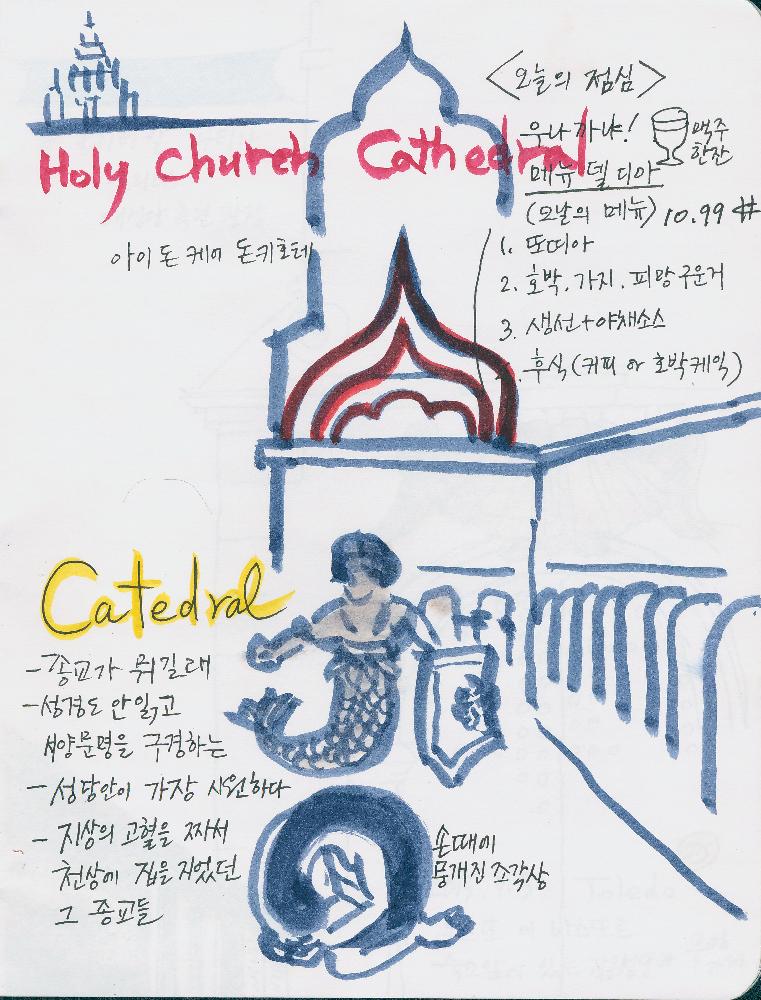 Holy Church Cathedral
아이 돈 케어 돈키호테
<오늘의 점심>
우나 까냐!
맥주
한잔
메뉴 델 디아
(오날의 메뉴) 10.99
1. 또띠아
2. 호박.가지.피망구운거
3. 생선+야채소스
후식(커피 or 호박케익)
Catedral
-종교가 뭐길래
-성경도 안 읽고
서양문명을 구경하는
- 성당안이 가장 시원하다
- 지상의 고혈을 짜서
천상에 집을 지었던
그 종교들
손때에
뭉개진 조각상
Toledo